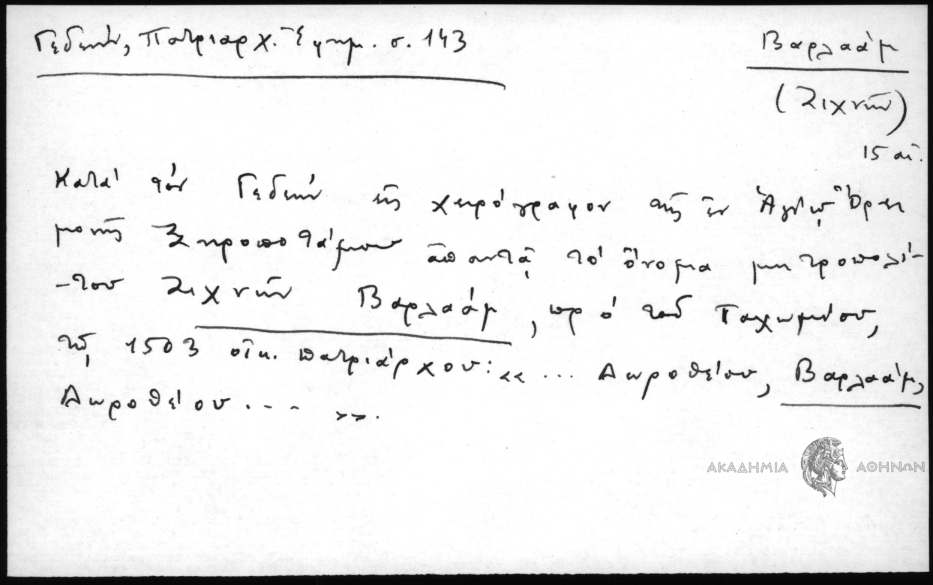 Γεδεών, Πατριαρχ. Ἐφημ. σ. 143
Βαρλαάμ
(Ζιχνῶν)
15 αἰ.
Κατά τόν Γεδεών εἰς χειρόγραφον τῆς ἐν Ἁγίῳ Ὄρει
μονῆς Ξηροποτάμου ἀπαντᾷ τό ὄνομα μητροπολί-
-του Ζιχνῶν Βαρλαάμ, πρό τοῦ Παχωμίου,
τῷ 1503 οἰκ. πατριάρχου: «... Δωροθέου, Βαρλαάμ,
Δωροθέου... ».
ΑΚΑΔΗΜΙΑ ΑΘΗΝΩΝ